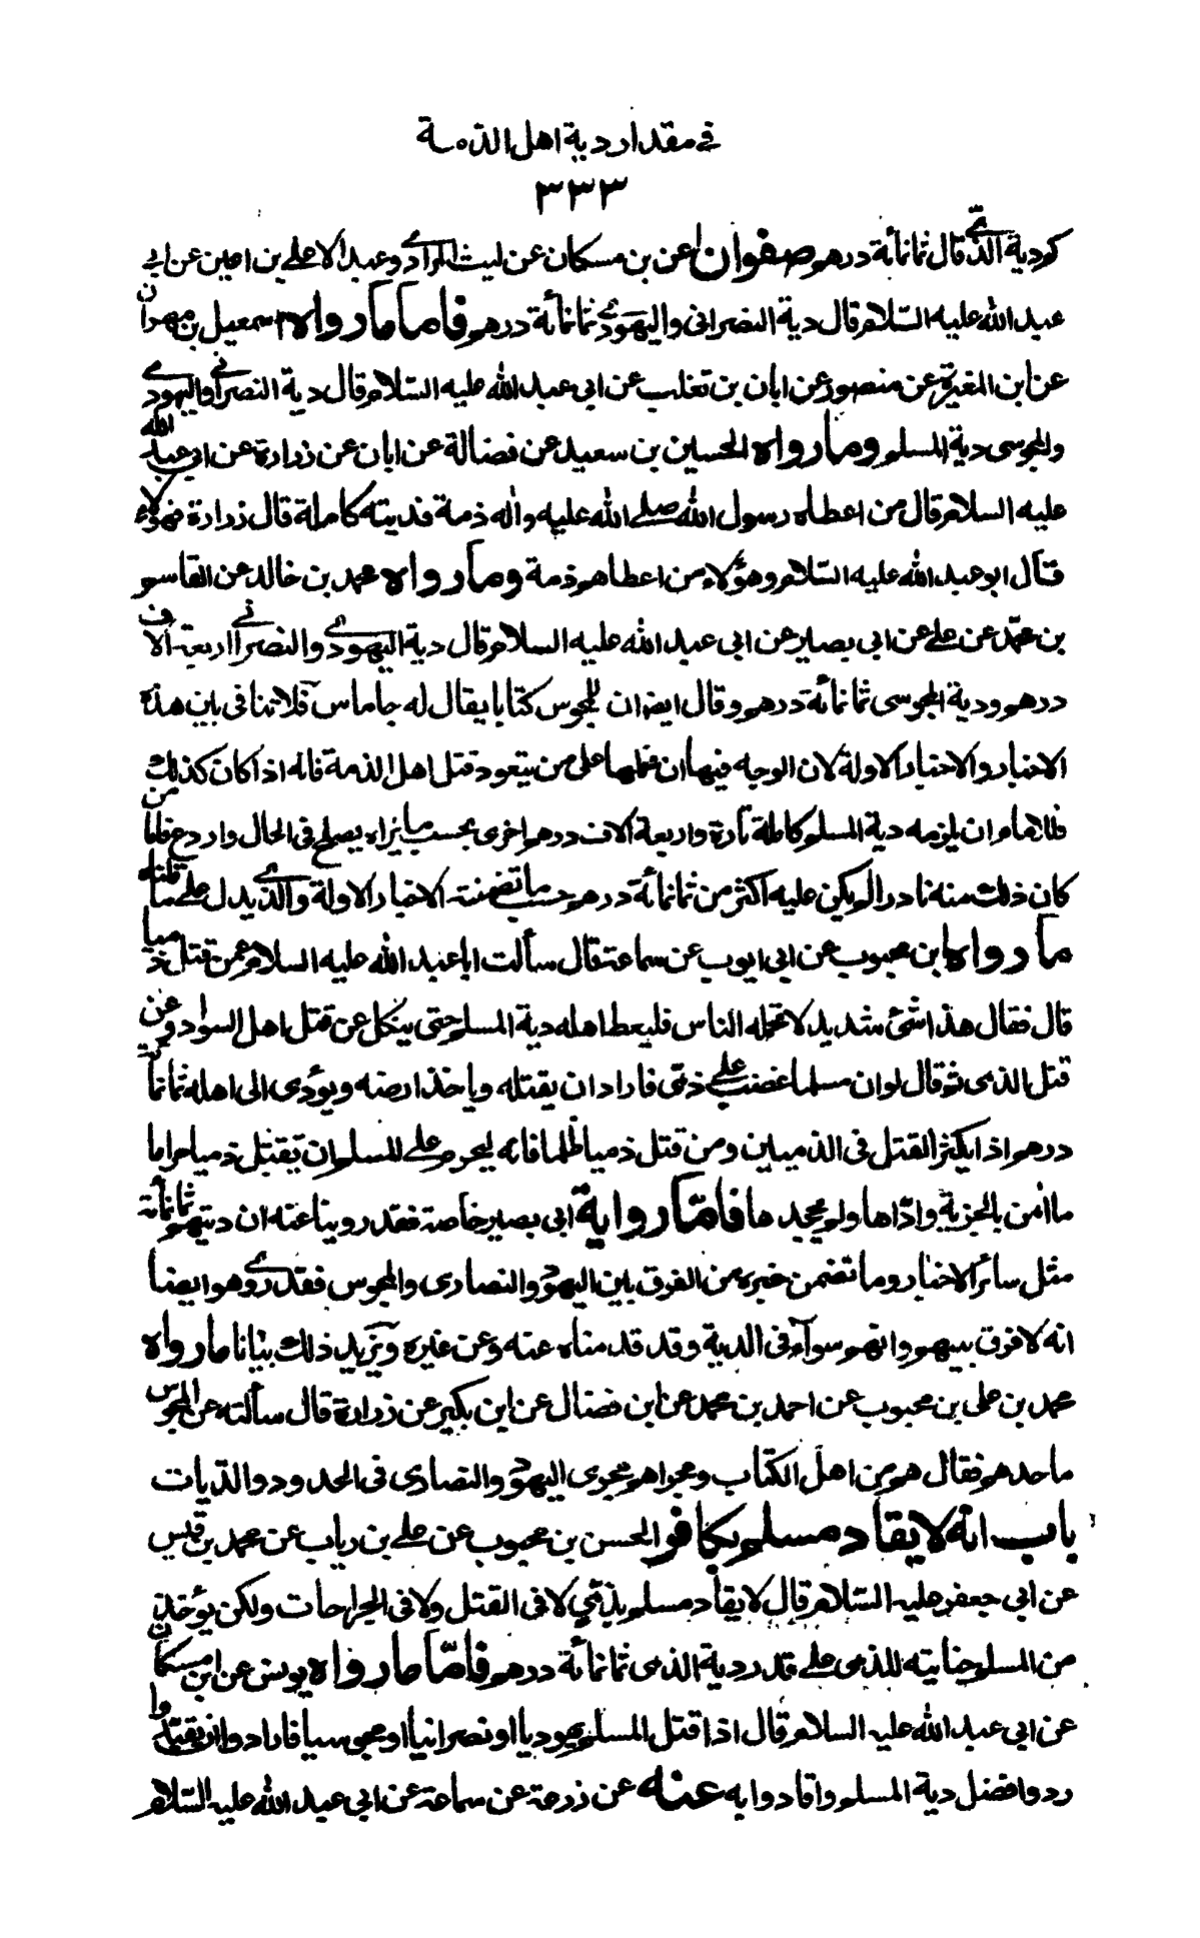 في مقدار دية اهل الذمة
٣٣٣
كم دية الذمي قال ثمانمائة درهم صفوان عن بن مسكان عن ليث المرادي وعبد الاعلى بن اعين عن ابي
عبد الله عليه السّلام قال دية النصراني واليهودي ثمانمائة درهم فاما ما رواه اسمعيل بن مهران
عن ابن المغيرة عن منصور عن ابان بن تغلب عن ابي عبد الله عليه السّلام قال دية النصراني واليهودي
والمجوسى دية المسلم وما رواه الحسين بن سعيد عن فضالة عن ابان عن زرارة عن ابي عبد الله
عليه السلام قال من اعطاه رسول الله صلى الله عليه واله ذمة فديته كاملة قال زرارة فهؤلاء
قال ابو عبد الله عليه السّلام وهؤلاء من اعطاهم ذمة وما رواه محمد بن خالد عن القاسم
بن محمّد عن علي عن ابى بصير عن ابى عبد الله عليه السلام قال دية اليهودي والنصراني اربعة الاف
درهم ودية المجوسى ثمانمائة درهم وقال ايضا ان للمجوس كتابا يقال له جاماس فلا تنافى بين هذه
الاخبار والاخبار الاولة لان الوجه فيها ان نحملها على من يتعود قتل اهل الذمة فانه اذا كان كذلك
فللامام ان يلزمه دية المسلم كاملة تارة واربعة الاف درهم اخرى بحسب ما يراه يصلح فى الحال واردع فاما من
كان ذلك منه نادرا لم يكن عليه اكثر من ثمانمائة درهم حسب ما تضمنته الاخبار الاولة والذي يدل على ما قلناه
ما رواه ابن محبوب عن ابى ايوب عن سماعة قال سألت ابا عبد الله عليه السلام عمن قتل ذميا
قال فقال هذا شئ شديد لا تحمله الناس فليعط اهله دية المسلم حتى ينكل عن قتل اهل السواد وعن
قتل الذمى ثم قال لو ان مسلما غضب على ذمّى فاراد ان يقتله وياخذ ارضه ويؤدى الى اهله ثمانمائة
درهم اذا يكثر القتل فى الذميين ومن قتل ذميا ظلما فانه ليحرم على المسلم ان يقتل ذميا حراما
ما امن بالجزية وادّاها ولم يجحدها فامّا رواية ابى بصير خاصة فقد روينا عنه ان ديتهم ثمانمائة
مثل سائر الاخبار وما تضمن خبره من الفرق بين اليهود والنصارى والمجوس فقد روى هو ايضا
انه لا فرق بينهم وانهم سوآء فى الدية وقد قدمناه عنه وعن غيره ويزيد ذلك بيانا ما رواه
محمد بن على بن محبوب عن احمد بن محمد عن ابن فضال عن ابن بكير عن زرارة قال سألته عن المجوس
ما حدهم فقال هم من اهل الكتاب ومجراهم مجرى اليهود والنصارى فى الحدود والدّيات
باب انه لا يقاد مسلم بكافر الحسن بن محبوب عن علي بن رياب عن محمد بن قيس
عن ابى جعفر عليه السّلام قال لا يقاد مسلم بذمّي لا فى القتل ولا فى الجراحات ولكن يؤخذ
من المسلم جنايته للذمى على قدر دية الذمى ثمانمائة درهم فامّا ما رواه يونس عن ابن مسكان
عن ابى عبد الله عليه السلام قال اذا قتل المسلم يهوديا او نصرانيا او مجوسيا فارادوا ان يقتلوا
ردوا فضل دية المسلم واقادوا به عنه عن زرعة عن سماعة عن ابى عبد الله عليه السّلام